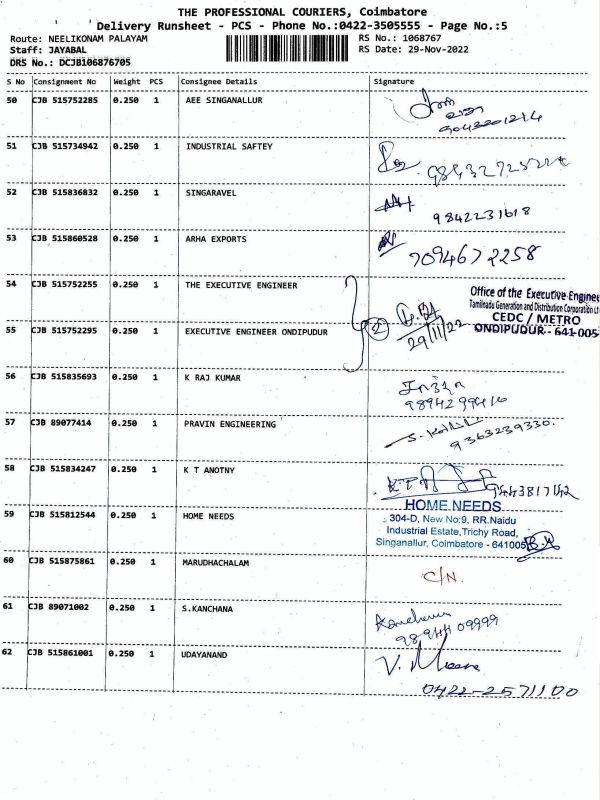 THE PROFESSIONAL COURIERS, Coimbatore
Delivery Runsheet - PCS - Phone No.:0422-3505555 - Page No.:5
Route: NEELIKONAM PALAYAM RS No.: 1068767
Staff: JAYABAL RS Date: 29-Nov-2022
DRS No.: DCJB106876705
S No Consignment No Weight PCS Consignee Details Signature
50 CJB 515752285 0.250 1 AEE SINGANALLUR
51 CJB 515734942 0.250 1 INDUSTRIAL SAFTEY
52 CJB 515836832 0.250 1 SINGARAVEL
9842231618
53 CJB 515860528 0.250 1 ARHA EXPORTS
7094672258
54 CJB 515752255 0.250 1 THE EXECUTIVE ENGINEER
Office of the Executive Enginee
Tamilnadu Generation and Distribution Corporation Lt
CEDC / METRO
ONDIPUDUR - 641 005
55 CJB 515752295 0.250 1 EXECUTIVE ENGINEER ONDIPUDUR
2
29/11/22
56 CJB 515835693 0.250 1 K RAJ KUMAR
9894299416
57 CJB 89077414 0.250 1 PRAVIN ENGINEERING
9363239330.
58 CJB 515834247 0.250 1 K T ANOTNY
9443817142
59 CJB 515812544 0.250 1 HOME NEEDS
HOME NEEDS
304-D, New No:9, RR.Naidu
Industrial Estate,Trichy Road,
Singanallur, Coimbatore - 641005
60 CJB 515875861 0.250 1 MARUDHACHALAM
C/N.
61 CJB 89071002 0.250 1 S.KANCHANA
Kanchana
9894409999
62 CJB 515861001 0.250 1 UDAYANAND
0422-2571100